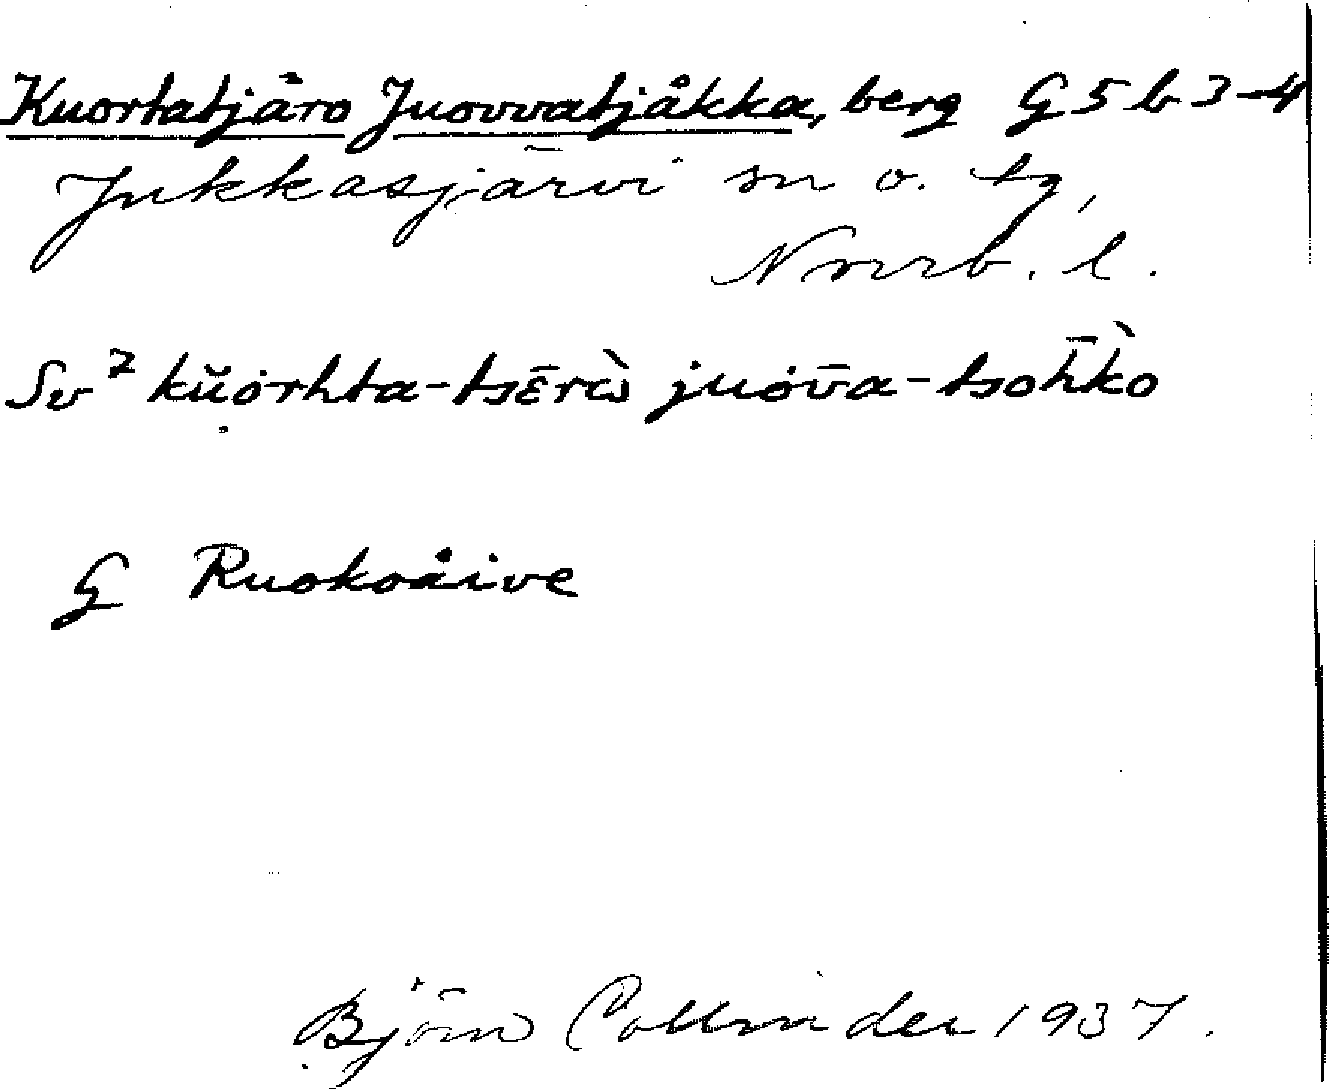 Kuortatjåro Juovvatjåkka, berg G 5 b 3-4
Jukkasjärvi sn o. tg,
Norrb. l.
Sv² kŭȯrhta-tsɛ̄rɑ̀ juȯv̄a-tsoh̄k̀o
G Ruokoåive
Björn Collinder 1937.